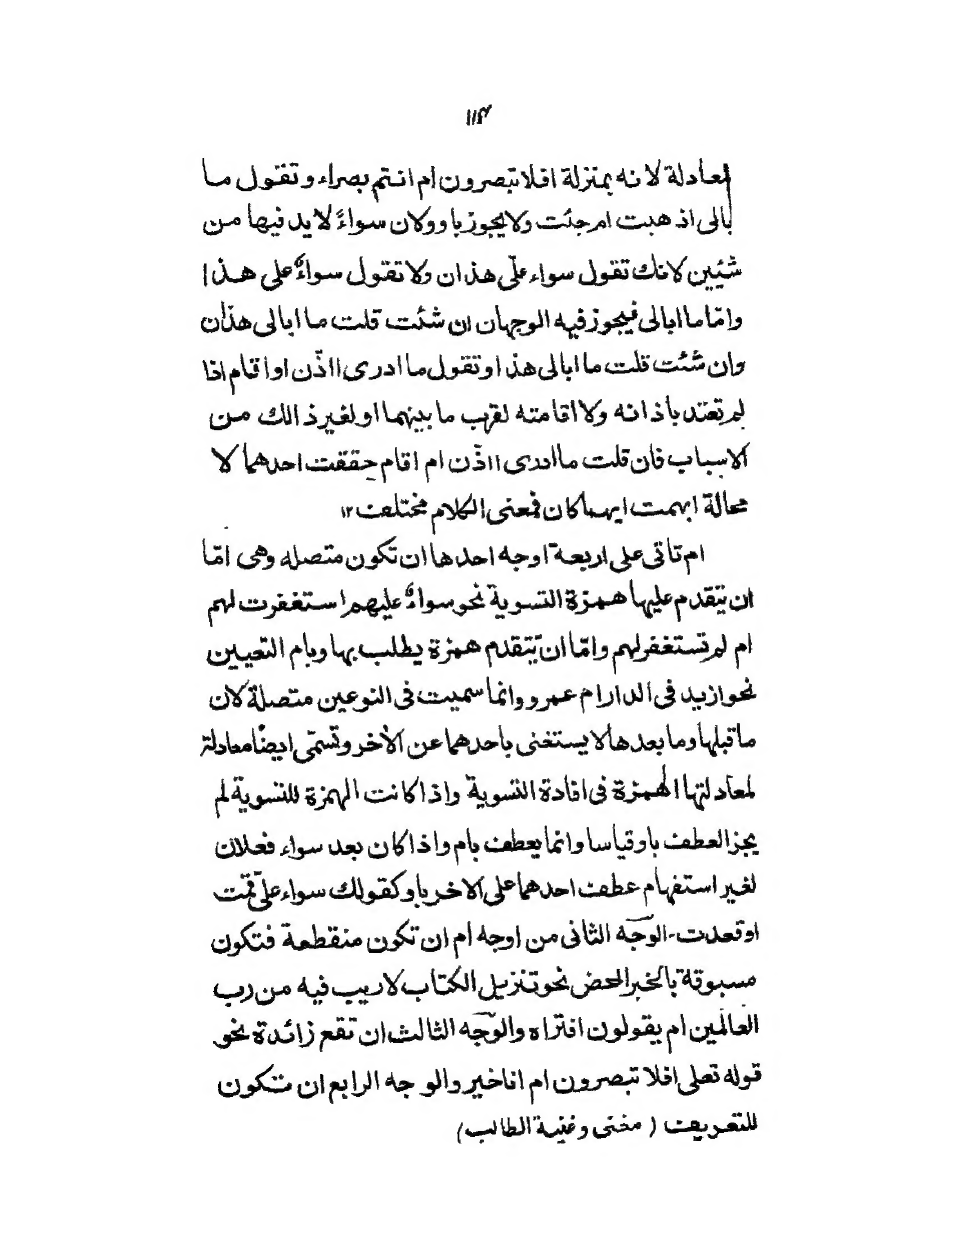 ۱۱۴
لمعادلة لانه بمنزلة افلا تبصرون ام انتم بصراء وتقول ما
بالى اذهبت ام جئت ولا يجوز باو ولان سواءً لا بد فيها من
شئيين لانك تقول سواء علىّ هذان ولا تقول سواءٌ على هذا
وامّا ما ابالى فيجوز فيه الوجهان ان شئت قلت ما ابالى هذان
وان شئت قلت ما ابالى هذا وتقول ما ادرى ااذّن او اقام اذا
لم تعتد باذانه ولا اقامته لقرب ما بينهما او لغير ذالك من
الاسباب فان قلت ما ادرى ااذّن ام اقام حققت احدهما لا
محالة ابهمت ايهما كان فمعنى الكلام مختلف ۱۲
ام تاتى على اربعة اوجه احدها ان تكون متصله وهى امّا
ان يتقدم عليها همزة التسوية نحو سواءٌ عليهم استغفرت لهم
ام لم تستغفر لهم وامّا ان يتقدم همزة يطلب بها وبام التعيين
نحو ازيد فى الدار ام عمرو وانما سميت فى النوعين متصلة لان
ما قبلها وما بعدها لا يستغنى باحدهما عن الأخر وتسمّى ايضًا معادلة
لمعادلتها الهمزة فى افادة التسوية واذا كانت الهمزة للتسوية لم
يجز العطف باو قياسا وانما يعطف بام واذا كان بعد سواء فعلان
لغير استفهام عطف احدهما على الاخر باو كقولك سواء علىّ قمت
او قعدت۔ الوجه الثانى من اوجه ام ان تكون منقطعة فتكون
مسبوقة بالخبر المحض نحو تنزيل الكتاب لا ريب فيه من رب
العالمين ام يقولون افتراه والوجه الثالث ان تقع زائدة نحو
قوله تعلى افلا تبصرون ام انا خير والوجه الرابع ان تكون
للتعريف ( مغنى وغنية الطالب)